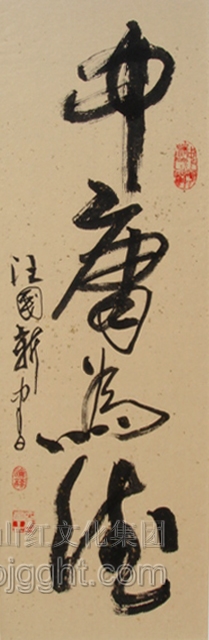 中庸為德
汪國新书
山红文化集团
bjgght.com